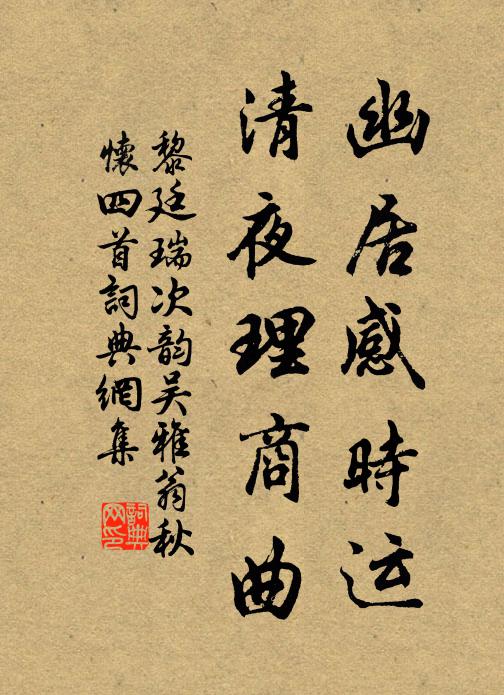 幽居感時运
清夜理商曲
黎廷瑞次韵吴雅翁秋
懷四首詞典網集
詞典
网印